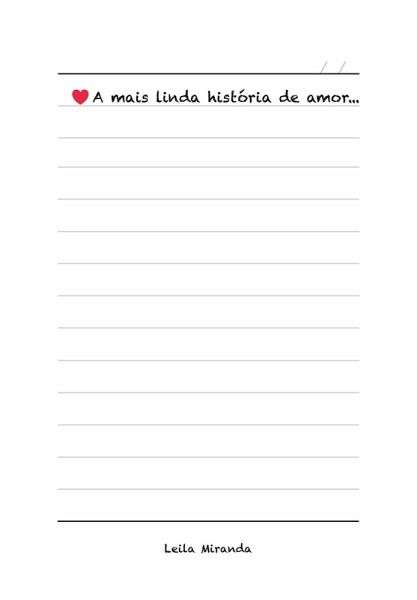 / /
A mais linda história de amor...
Leila Miranda